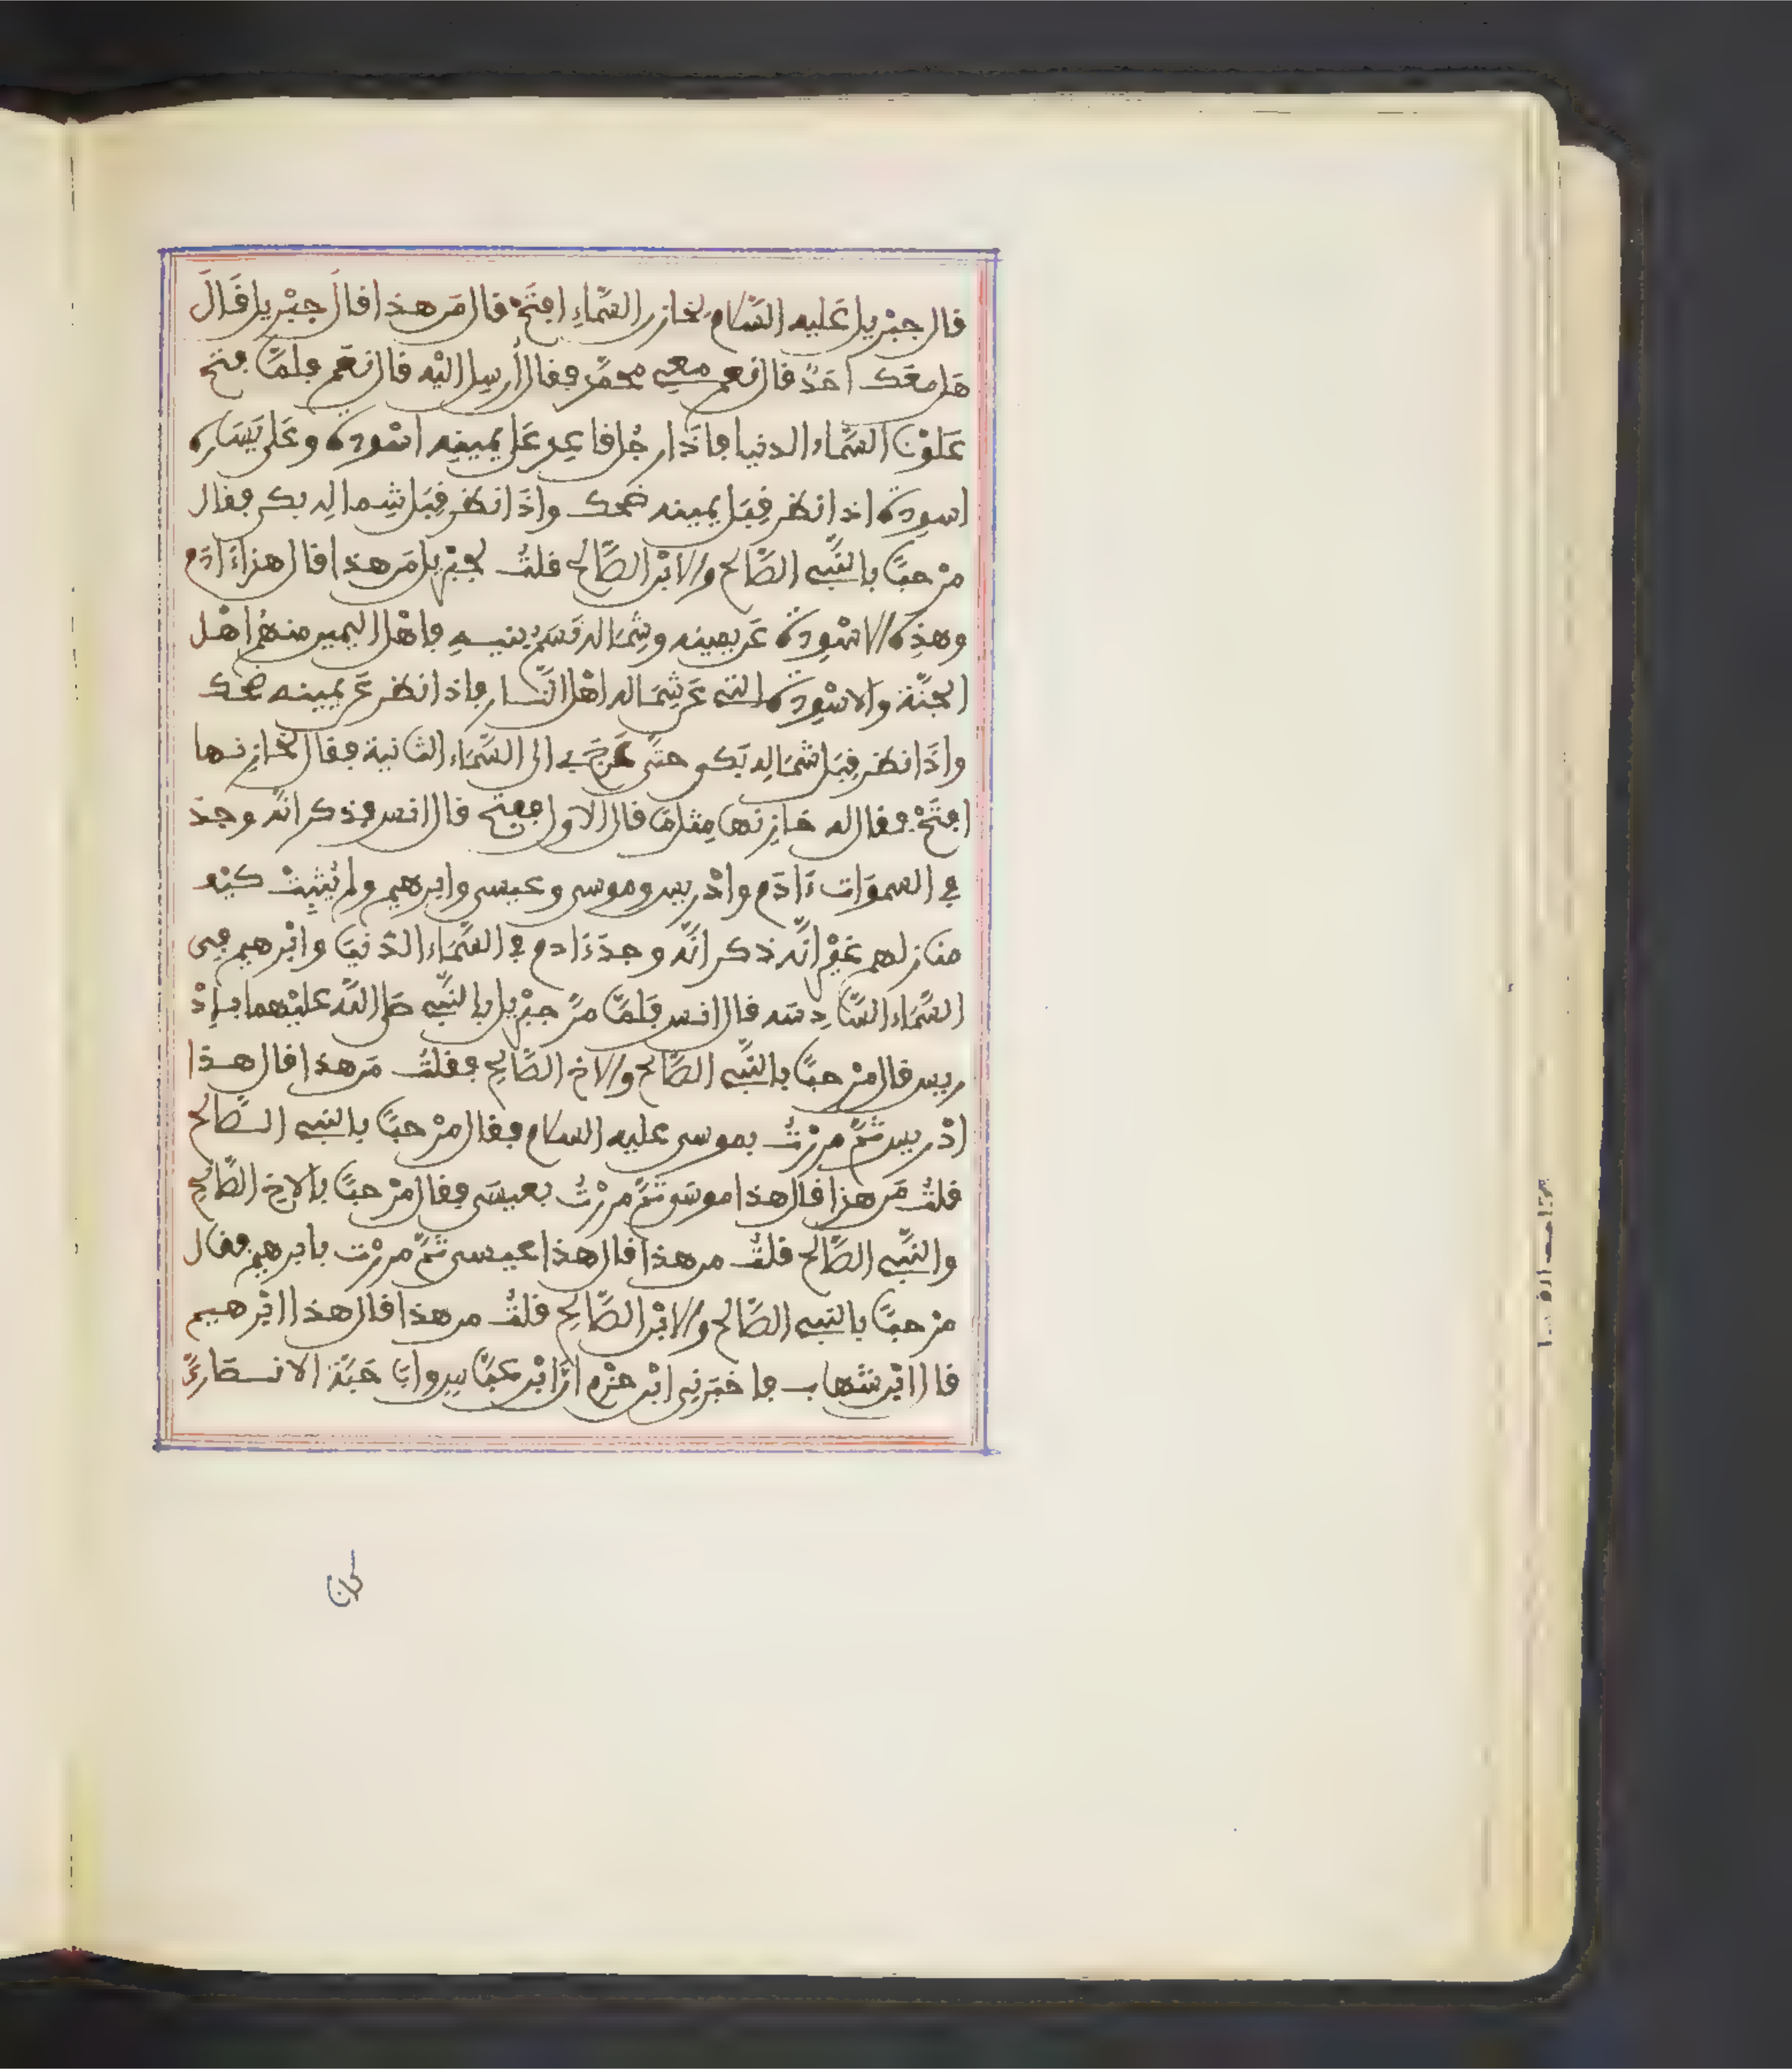 قال جبْريل عَليه السَّلام لخازن السَّماءِ افتَحْ قال مَن هذا قالَ جبْريل قَالَ
هَل معَك أحَدٌ قال نعم معِي محمَّد فقال أُرسِل إليْه قال نعَم فلمَّا فتح
عَلَوْنَا السَّماء الدنيا فإذَا رجُل قاعِد عَلى يمينِه اسْوِدة وعَلى يَسَاره
اسوِدة إذا نظر قِبَل يمينه ضحك وإذَا نظر قِبَل شِماله بكى فقال
مرْحبًا بالنَّبي الصَّالح والابْن الصَّالح قلتُ لجبْريل مَن هذا قال هذا ءَادَم
وهذِه الاسْوِدة عَن يمينه وشِمَاله نَسَمُ بنيهِ فاهْل اليمين منهُم اهْل
الجنَّة والاسْوِدة التي عَن شِمَاله اهْل النَّار فإذا نظر عَن يمينه ضحك
وإذَا نظر قِبَل شمَالِه بَكى حتَّى عَرَجَ بي الى السَّمَاء الثانية فقال لخازِنها
افتَحْ فقال له خازِنها مِثل مَا قال الاول ففتح قال انس فذكر أنَّه وجدَ
في السموَات ءَادَم وادْريس وموسى وعيسى وابرهيم ولم يُثبِتْ كيْف
منازلهم غيْر أنَّه ذكر أنَّه وجدَ ءَادم في السَّمَاء الدّنيَا وابْرهيم في
السَّمَاء السَّادِسَه قال انس فلَمَّا مرَّ جبْريل بالنَّبي صَلى اللَّه عليْهما بإدْ
ريس قال مرْحبًا بالنَّبي الصَّالح والاخ الصَّالح فقلتُ مَن هذا قال هذا
ادْريس ثمَّ مررْتُ بموسى عليه السلام فقال مرْحبًا بالنبي الصَّالح
قلتُ مَن هذا قال هذا موسَى ثمَّ مررْتُ بعيسَى فقال مرْحبًا بالاخ الصَّالحِ
والنَّبي الصَّالح قلتُ من هذا قال هذا عيسى ثمَّ مررْت بابرهيم فقال
مرْحبًا بالنبي الصَّالح والابْن الصَّالح قلتُ من هذا قال هذا ابْرهيم
قال ابْن شهاب فاخبَرني ابْن حزْم أنَّ ابْن عبَّاس وابَا حَبَّة الانصَاريَّ
كان